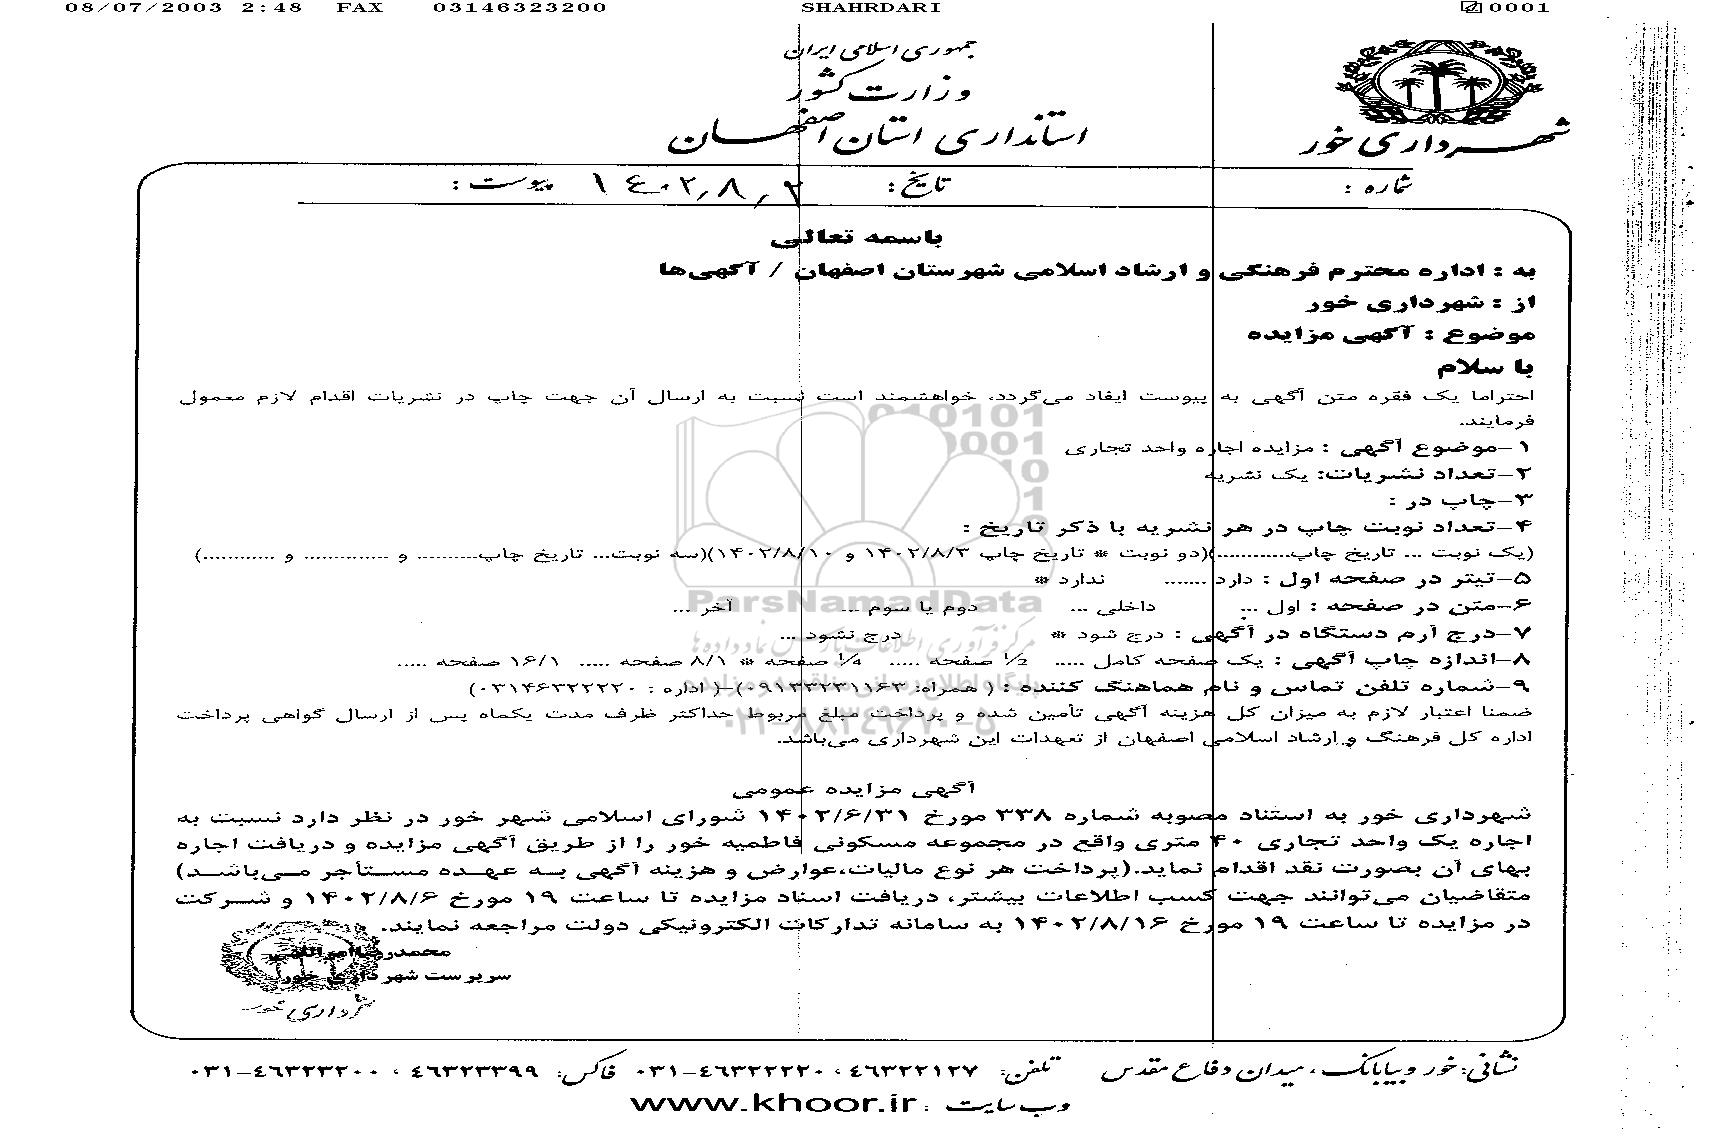 08/07/2003 2:48 FAX 03146323200 SHAHRDARI 0001
جمهوری اسلامی ایران
وزارت کشور
استانداری استان اصفهان
شهرداری خور
شماره :
تاریخ : ۱۴۰۲,۸,۲
پیوست :
باسمه تعالی
به : اداره محترم فرهنگی و ارشاد اسلامی شهرستان اصفهان / آگهی‌ها
از : شهرداری خور
موضوع : آگهی مزایده
با سلام
احتراما یک فقره متن آگهی به پیوست ایفاد می‌گردد، خواهشمند است نسبت به ارسال آن جهت چاپ در نشریات اقدام لازم معمول
فرمایند.
۱-موضوع آگهی : مزایده اجاره واحد تجاری
۲-تعداد نشریات: یک نشریه
۳-چاپ در :
۴-تعداد نوبت چاپ در هر نشریه با ذکر تاریخ :
(یک نوبت ... تاریخ چاپ............)(دو نوبت * تاریخ چاپ ۱۴۰۲/۸/۳ و ۱۴۰۲/۸/۱۰)(سه نوبت... تاریخ چاپ.......... و .............. و ...........)
۵-تیتر در صفحه اول : دارد ....... ندارد *
۶-متن در صفحه : اول ... داخلی ... دوم یا سوم ... آخر ...
۷-درج آرم دستگاه در آگهی : درج شود * درج نشود ...
۸-اندازه چاپ آگهی : یک صفحه کامل ..... ½ صفحه ..... ¼ صفحه * ۸/۱ صفحه ..... ۱۶/۱ صفحه .....
۹-شماره تلفن تماس و نام هماهنگ کننده : ( همراه: ۰۹۱۳۳۲۳۱۱۶۳)-( اداره : ۰۳۱۴۶۳۲۲۲۲۰)
ضمنا اعتبار لازم به میزان کل هزینه آگهی تأمین شده و پرداخت مبلغ مربوط حداکثر ظرف مدت یکماه پس از ارسال گواهی پرداخت
اداره کل فرهنگ و ارشاد اسلامی اصفهان از تعهدات این شهرداری می‌باشد.
آگهی مزایده عمومی
شهرداری خور به استناد مصوبه شماره ۳۳۸ مورخ ۱۴۰۲/۶/۳۱ شورای اسلامی شهر خور در نظر دارد نسبت به
اجاره یک واحد تجاری ۴۰ متری واقع در مجموعه مسکونی فاطمیه خور را از طریق آگهی مزایده و دریافت اجاره
بهای آن بصورت نقد اقدام نماید.(پرداخت هر نوع مالیات،عوارض و هزینه آگهی به عهده مستأجر می‌باشد)
متقاضیان می‌توانند جهت کسب اطلاعات بیشتر، دریافت اسناد مزایده تا ساعت ۱۹ مورخ ۱۴۰۲/۸/۶ و شرکت
در مزایده تا ساعت ۱۹ مورخ ۱۴۰۲/۸/۱۶ به سامانه تدارکات الکترونیکی دولت مراجعه نمایند.
محمدرضا
سرپرست شهرداری خور
شهرداری خور
نشانی: خور و بیابانک ، میدان دفاع مقدس تلفن: ۴۶۳۲۲۱۲۷ ، ۰۳۱-۴۶۳۲۲۲۲۰ فاکس: ۴۶۳۲۳۳۹۹ ، ۰۳۱-۴۶۳۲۳۲۰۰
وب سایت : www.khoor.ir
ParsNamadData
مرکز فرآوری اطلاعات پارس نماد داده‌ها
پایگاه اطلاع رسانی مناقصه و مزایده
۰۲۱-۸۸۳۴۹۶۷۰-۵